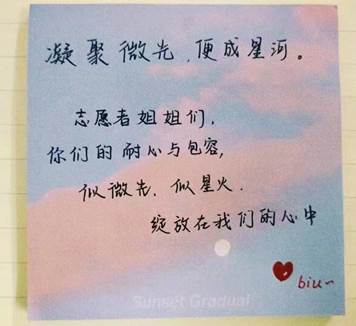 凝聚微光,便成星河。
志愿者姐姐们,
你们的耐心与包容,
似微光,似星火.
绽放在我们的心中
biu~
Sunset Gradual